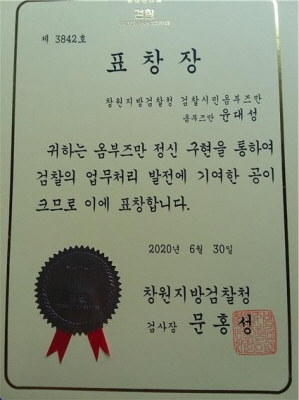 검찰
제 3842호
표창장
창원지방검찰청 검찰시민옴부즈만
옴부즈만 윤대성
귀하는 옴부즈만 정신 구현을 통하여
검찰의 업무처리 발전에 기여한 공이
크므로 이에 표창합니다.
2020년 6월 30일
창원지방검찰청
검사장 문홍성